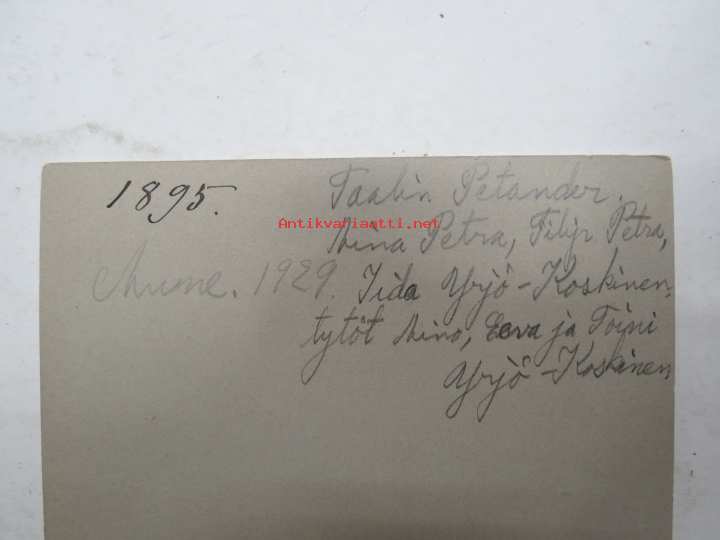 1895.
Taalin Petander.
Antikvariaatti.net
Mina Petra, Filip Petra,
1929. Iida Yrjö-Koskinen,
tytöt Aino, Eeva ja Toini
Yrjö-Koskinen